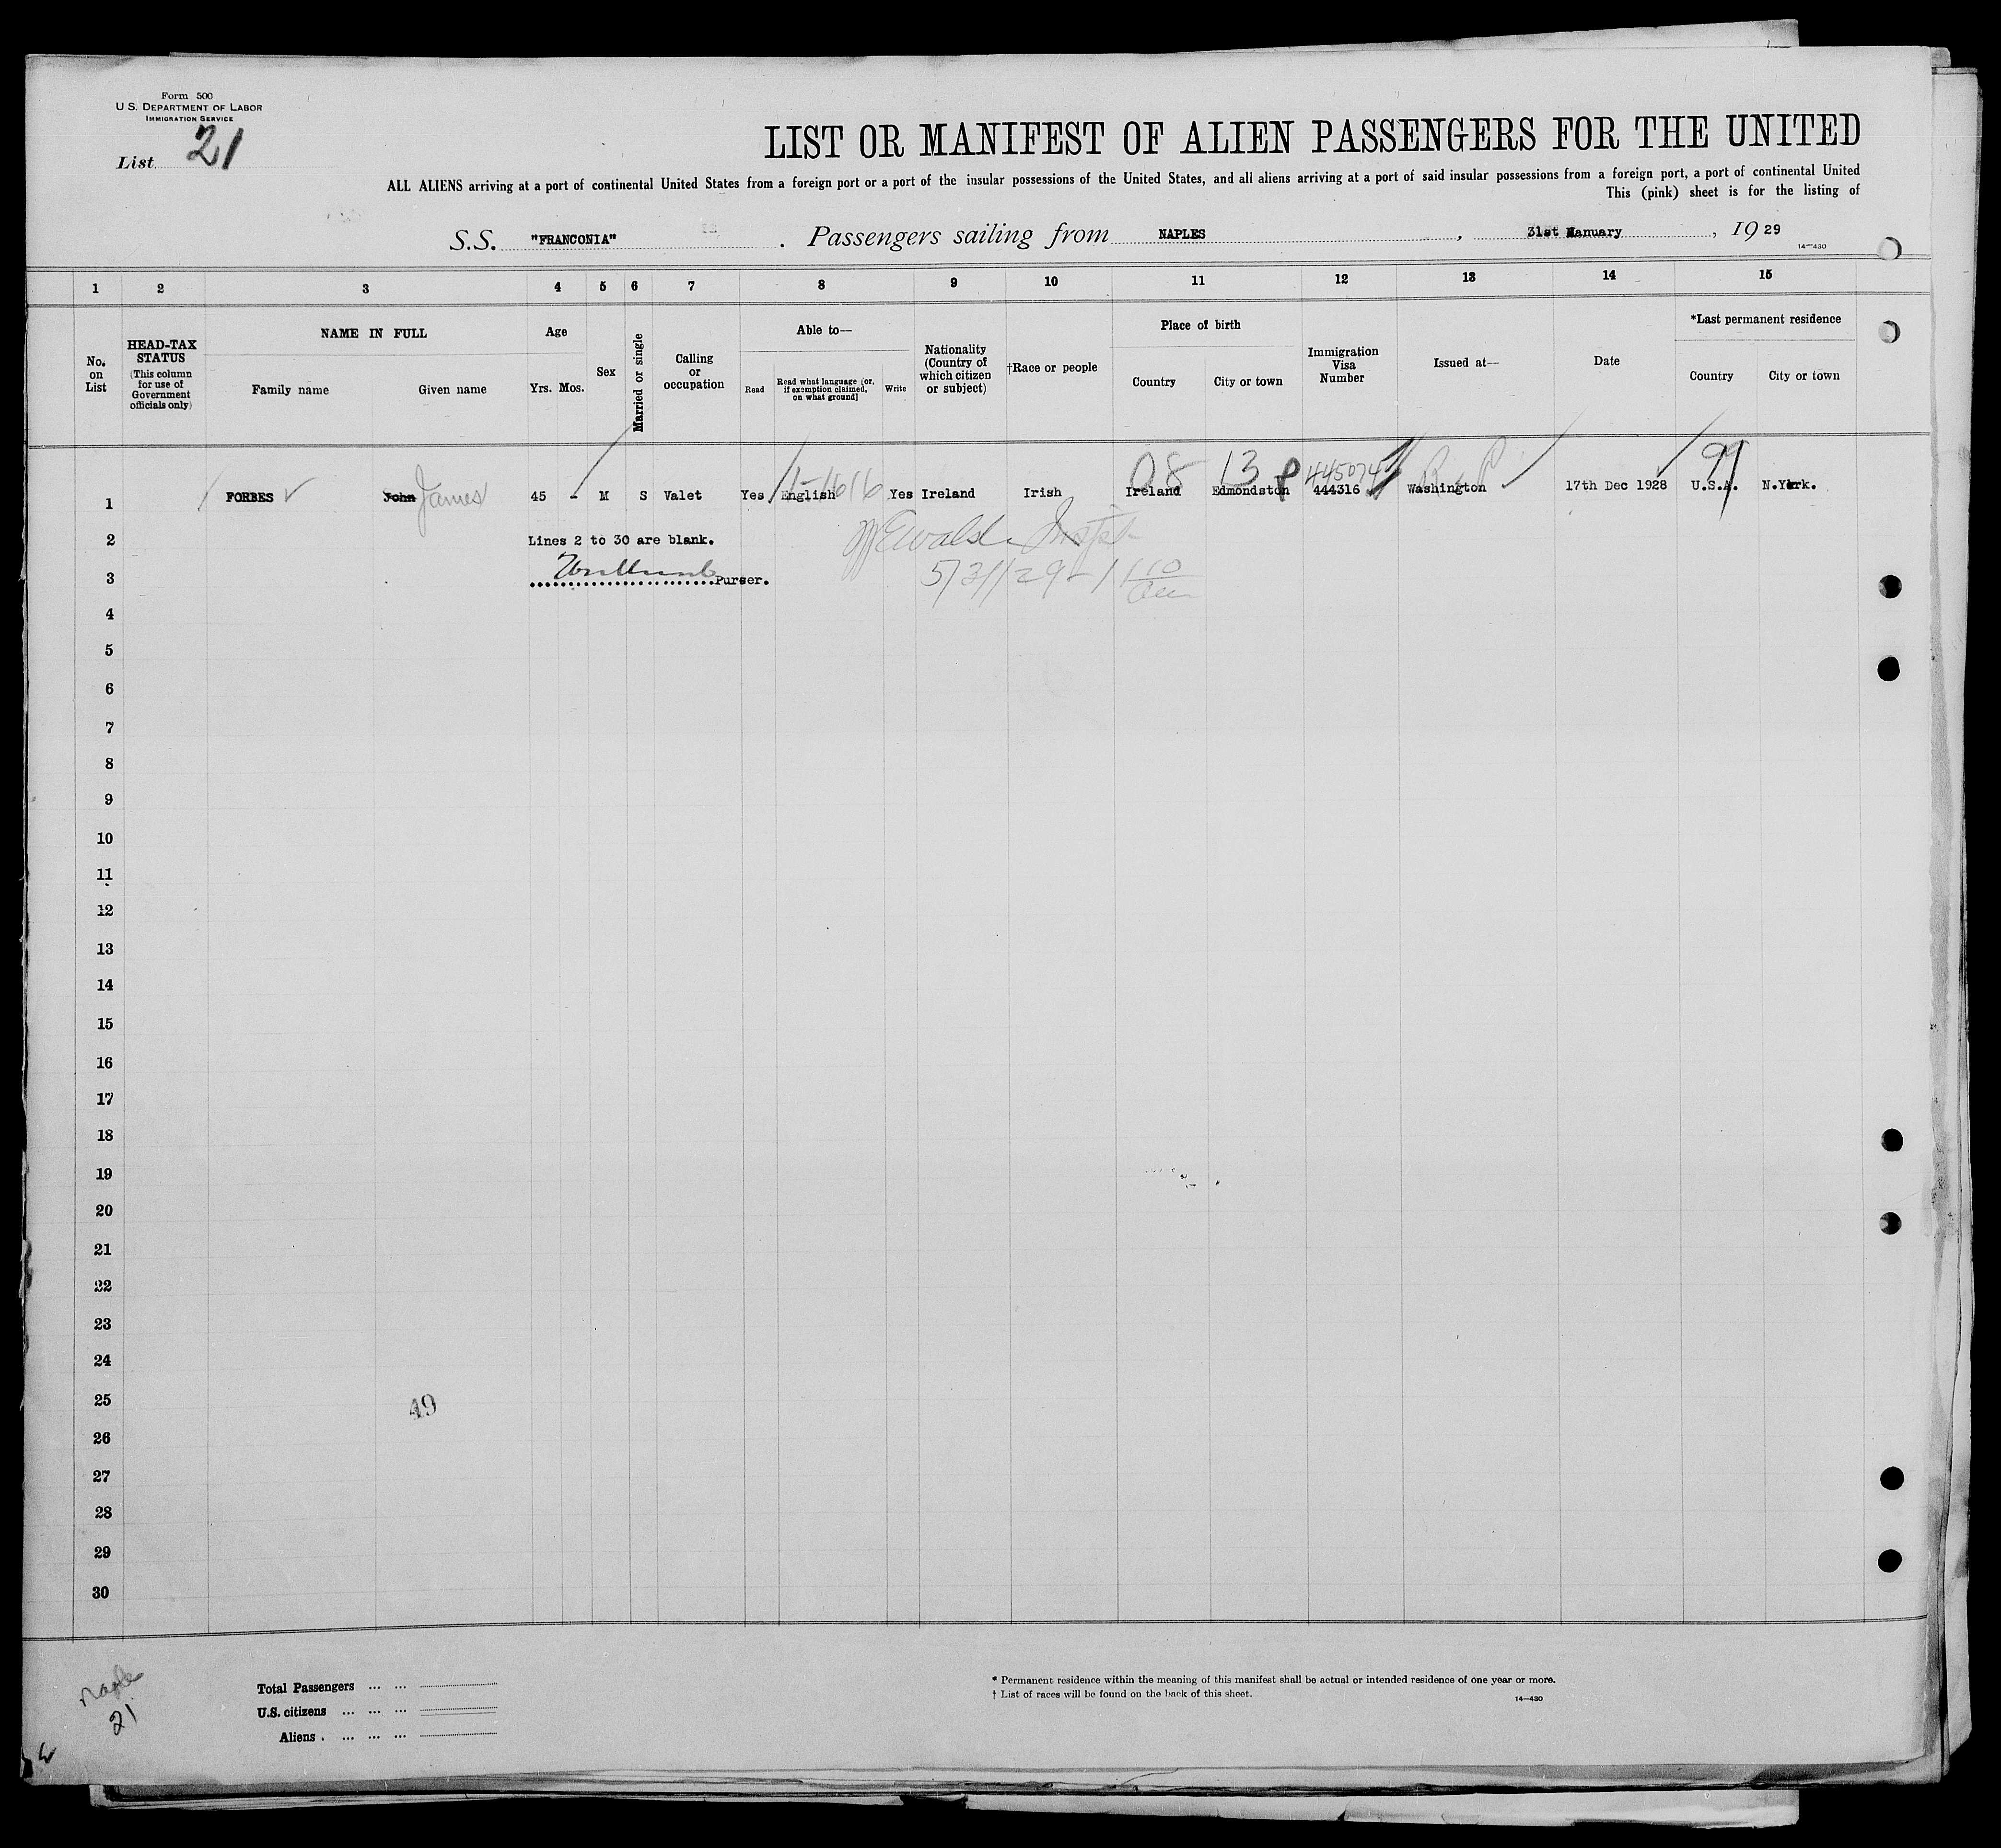 Form 500
U.S. DEPARTMENT OF LABOR
IMMIGRATION SERVICE
List 21
LIST OR MANIFEST OF ALIEN PASSENGERS FOR THE UNITED
ALL ALIENS arriving at a port of continental United States from a foreign port or a port of the insular possessions of the United States, and all aliens arriving at a port of said insular possessions from a foreign port, a port of continental United
This (pink) sheet is for the listing of
S.S. "FRANCONIA" . Passengers sailing from NAPLES , 31st January , 19 29
14—430
1 2 3 4 5 6 7 8 9 10 11 12 13 14 15
No. on List
HEAD-TAX STATUS (This column for use of Government officials only)
NAME IN FULL
Family name Given name
Age
Yrs. Mos.
Sex
Married or single
Calling or occupation
Able to—
Read
Read what language (or, if exemption claimed, on what ground)
Write
Nationality (Country of which citizen or subject)
†Race or people
Place of birth
Country City or town
Immigration Visa Number
Issued at—
Date
*Last permanent residence
Country City or town
08 13 P 445074 99
1 FORBES John James 45 - M S Valet Yes English Yes Ireland Irish Ireland Edmondston 444316 Washington 17th Dec 1928 U.S.A. N.York.
2 Lines 2 to 30 are blank.
3 Purser. 5/31/29
4
5
6
7
8
9
10
11
12
13
14
15
16
17
18
19
20
21
22
23
24
25
49
26
27
28
29
30
Naples
21
Total Passengers ... ...
U.S. citizens ... ... ...
Aliens . ... ... ...
* Permanent residence within the meaning of this manifest shall be actual or intended residence of one year or more.
† List of races will be found on the back of this sheet.
14—430